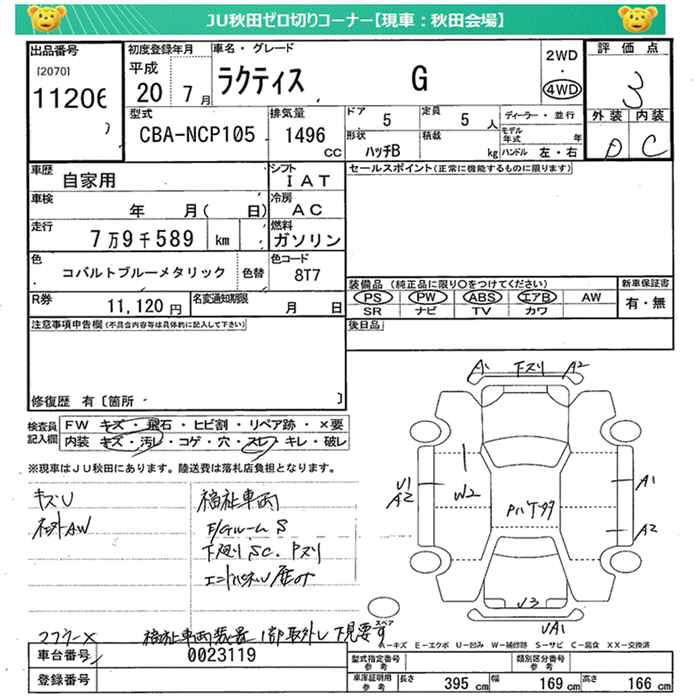 JU秋田ゼロ切りコーナー【現車：秋田会場】
出品番号
[2070]
11206
初度登録年月
平成
20 7月
車名・グレード
ラクティス G
2WD
・
4WD
評価点
3
外装 内装
D C
型式
CBA-NCP105
排気量
1496
CC
ドア 5
定員 5 人
形状
ハッチB
積載
kg
ディーラー・並行
モデル年式 年
ハンドル 左・右
車歴
自家用
シフト
IAT
車検
年 月( 日)
冷房
AC
走行
7万9千589 km
燃料
ガソリン
色
コバルトブルーメタリック
色替
色コード
8T7
R券
11,120円
名変通知期限
月 日
セールスポイント(正常に機能するものに限ります)
装備品(純正品に限り○をつけてください)
PS PW ABS エアB AW
SR ナビ TV カワ
新車保証書
有・無
後日品
注意事項申告欄(不具合内容等は具体的に記入して下さい)
修復歴 有〔箇所 〕
検査員記入欄
FW キズ・飛石・ヒビ割・リペア跡・×要
内装 キズ・汚レ・コゲ・穴・スレ・キレ・破レ
※現車はJU秋田にあります。陸送費は落札店負担となります。
キズU
社外AW
福祉車両
E/Gルーム S
下廻り SC.Pスリ
マフラーX
福祉車両装置1部取外し下見要す
A1 下スリ A2
U1
A2
W2
A1
A2
U3
UA1
スペア
A=キズ E=エクボ U=凹み W=補修跡 S=サビ C=腐食 XX=交換済
車台番号
0023119
登録番号
型式指定番号
参考
類別区分番号
参考
車庫証明用
参考
長さ 395 cm
幅 169 cm
高さ 166 cm